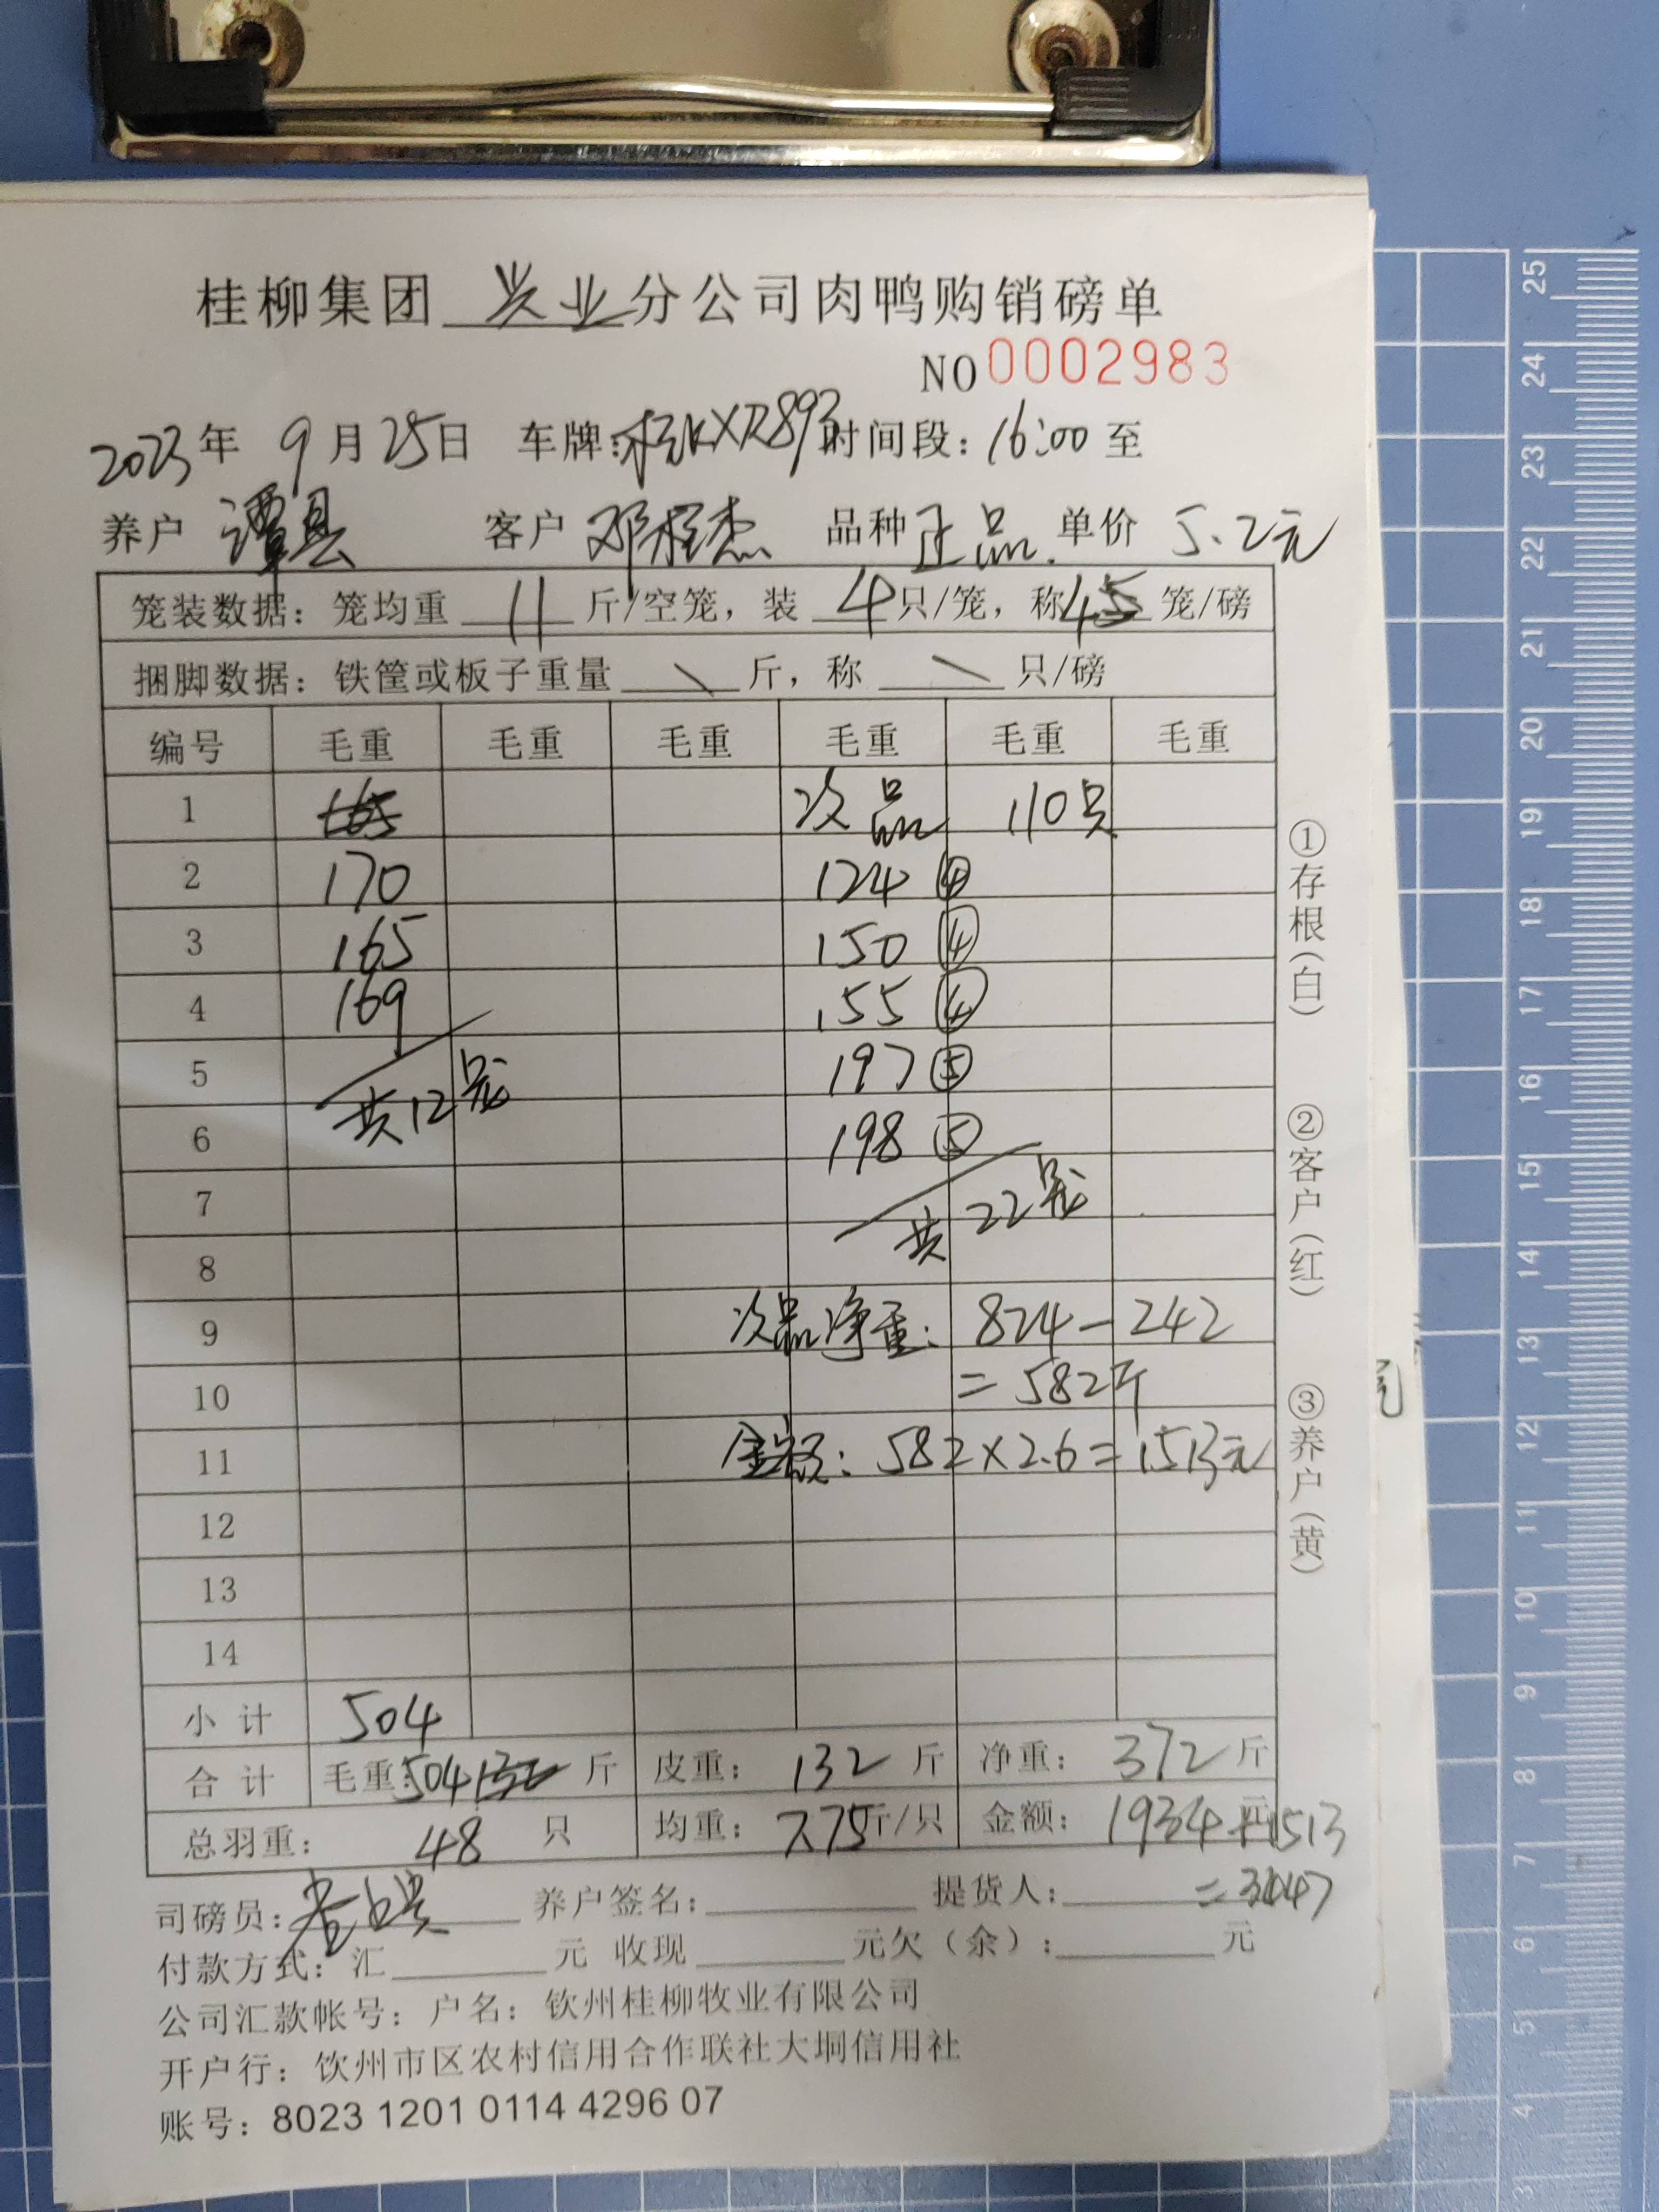 桂柳集团 兴业 分公司肉鸭购销磅单
NO 0002983
2023年 9月25日 车牌:桂KXR893 时间段:16:00 至
养户 谭昙 客户 邓桂杰 品种 正品. 单价 5.2元
笼装数据: 笼均重 11 斤/空笼, 装 4 只/笼, 称 45 笼/磅
捆脚数据: 铁筐或板子重量 \ 斤, 称 \ 只/磅
编号 毛重 毛重 毛重 毛重 毛重 毛重
1 165 次品 110只
2 170 124 ④
3 165 150 ④
4 169 155 ④
5 共12笼 197 ⑤
6 198 ⑤
7 共22笼
8
9 次品净重: 824-242
10 =582斤
11 金额: 582×2.6=1513元
12
13
14
小计 504
合计 毛重:504 132 斤 皮重: 132 斤 净重: 372 斤
总羽重: 48 只 均重: 7.75斤/只 金额: 1934元+1513
司磅员: 养户签名: 提货人: =3447
付款方式: 汇 元 收现 元欠(余): 元
公司汇款帐号: 户名: 钦州桂柳牧业有限公司
开户行: 饮州市区农村信用合作联社大垌信用社
账号: 8023 1201 0114 4296 07
①存根(白) ②客户(红) ③养户(黄)
25
24
23
22
21
20
19
18
17
16
15
14
13
12
11
10
9
8
7
6
5
4
3